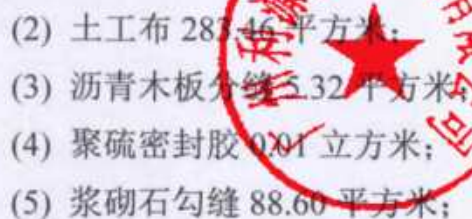 (2) 土工布 283.46 平方米;
(3) 沥青木板分缝 5.32 平方米;
(4) 聚硫密封胶 0.01 立方米;
(5) 浆砌石勾缝 88.60 平方米;